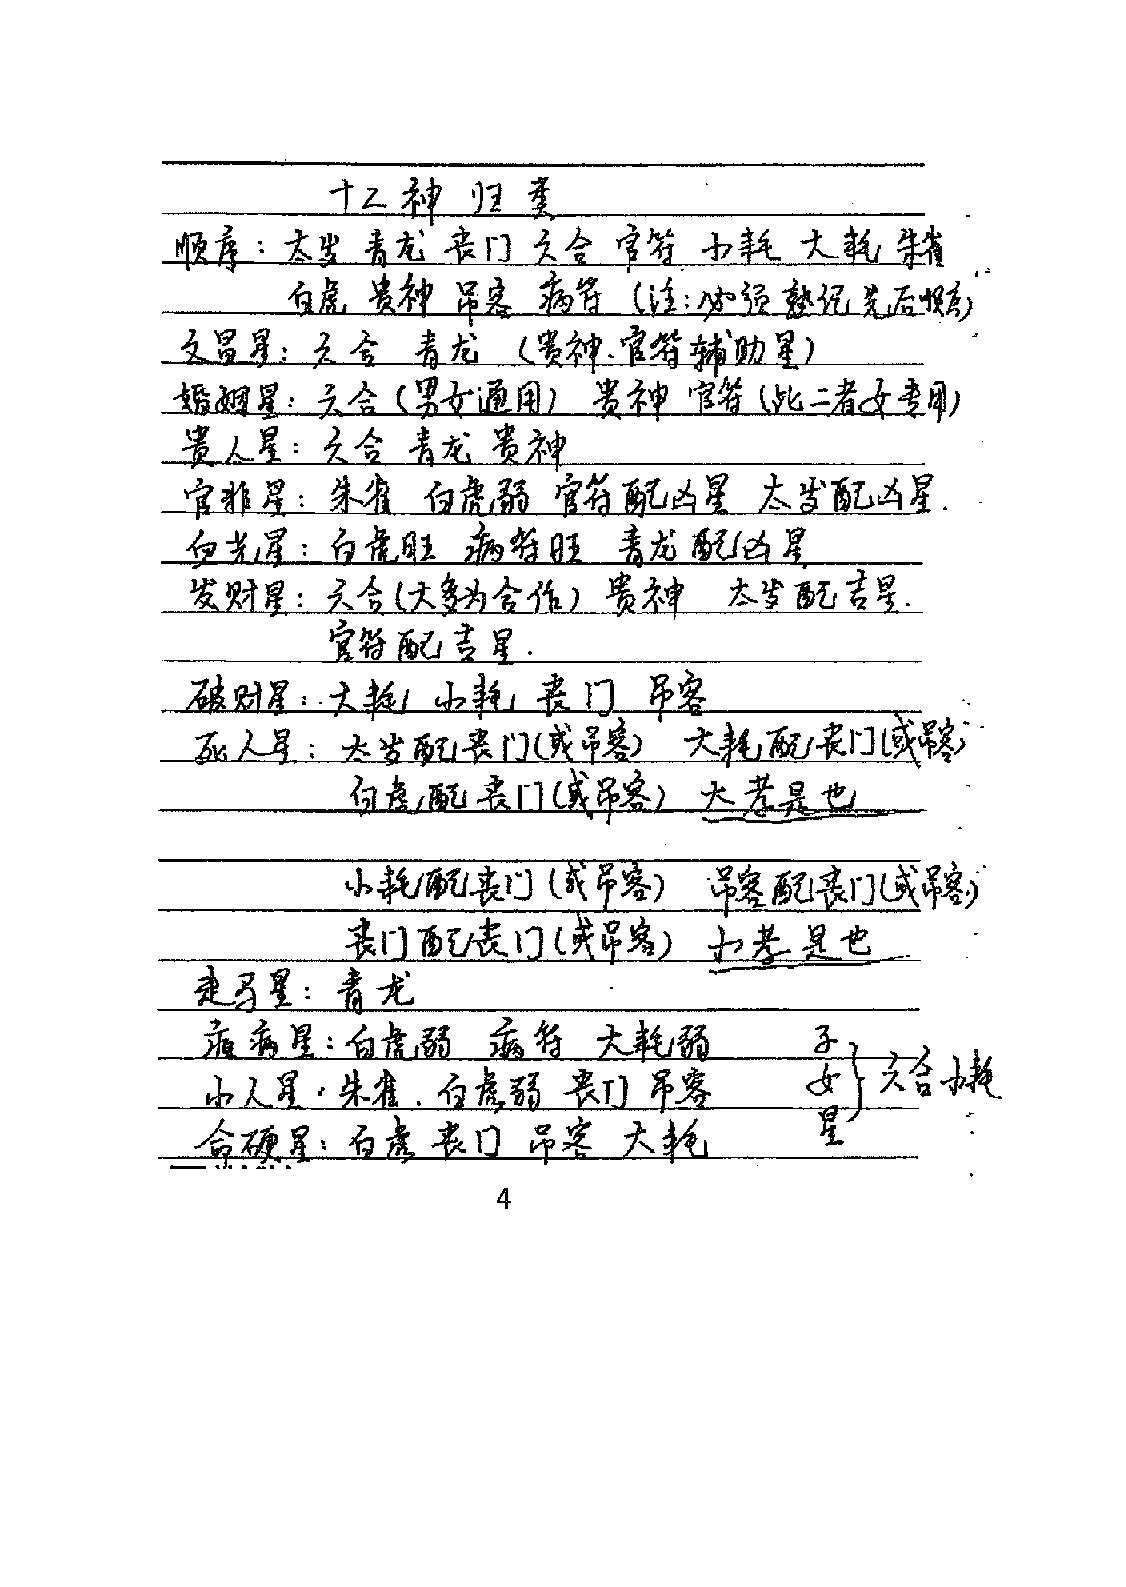 十乙神归类
顺序：太岁 青龙 丧门 六合 官符 小耗 大耗 朱雀
白虎 贵神 吊客 病符（注：必须熟记先后顺序）
文昌星：六合 青龙（贵神、官符辅助星）
婚姻星：六合（男女通用） 贵神 官符（此二者女专用）
贵人星：六合 青龙 贵神
官非星：朱雀 白虎弱 官符配凶星 太岁配凶星.
血光星：白虎旺 病符旺 青龙配凶星
发财星：六合（大多为合作） 贵神 太岁配吉星.
官符配吉星.
破财星：大耗, 小耗, 丧门 吊客
死人星：太岁配丧门（或吊客） 大耗配丧门（或吊客）
白虎配丧门（或吊客） 大孝是也
小耗配丧门（或吊客） 吊客配丧门（或吊客）
丧门配丧门（或吊客） 小孝是也
走马星：青龙
疾病星：白虎弱 病符 大耗弱
小人星：朱雀．白虎弱 丧门 吊客
命硬星：白虎 丧门 吊客 大耗
子女星｝六合 小耗
4